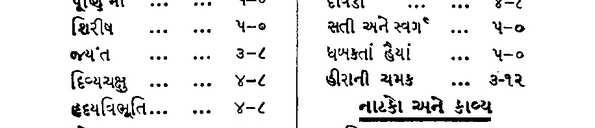 શિરીષ ... ... ૫-૦
જયંત ... ... ૩-૮
દિવ્યચક્ષુ ... ... ૪-૮
હૃદયવિભૂતિ... ... ૪-૮
સતી અને સ્વર્ગ ... ૫-૦
ધબકતાં હૈયાં ... ૫-૦
હીરાની ચમક ... ૩-૧૨
નાટકો અને કાવ્ય